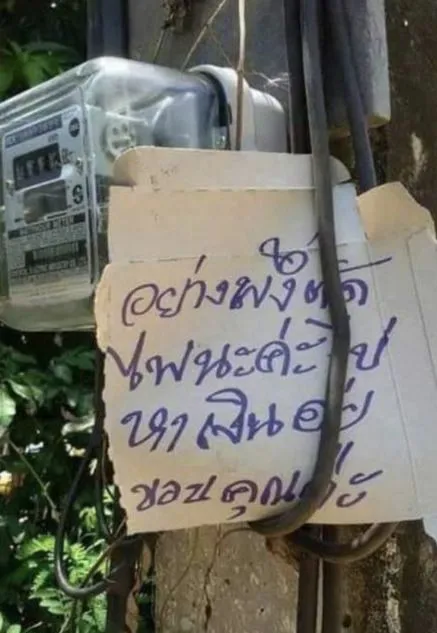 อย่างพึ่งตัด
ไฟนะค่ะ ไป
หาเงินอยู่
ขอบคุณค่ะ